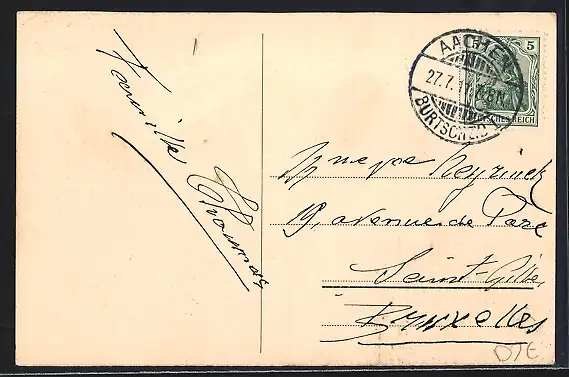 Famille Thomas
AACHEN
27.7.
BURTSCHEID
5
DEUTSCHES REICH
19, avenue de Parc
Saint-Gilles
Bruxelles
DTE